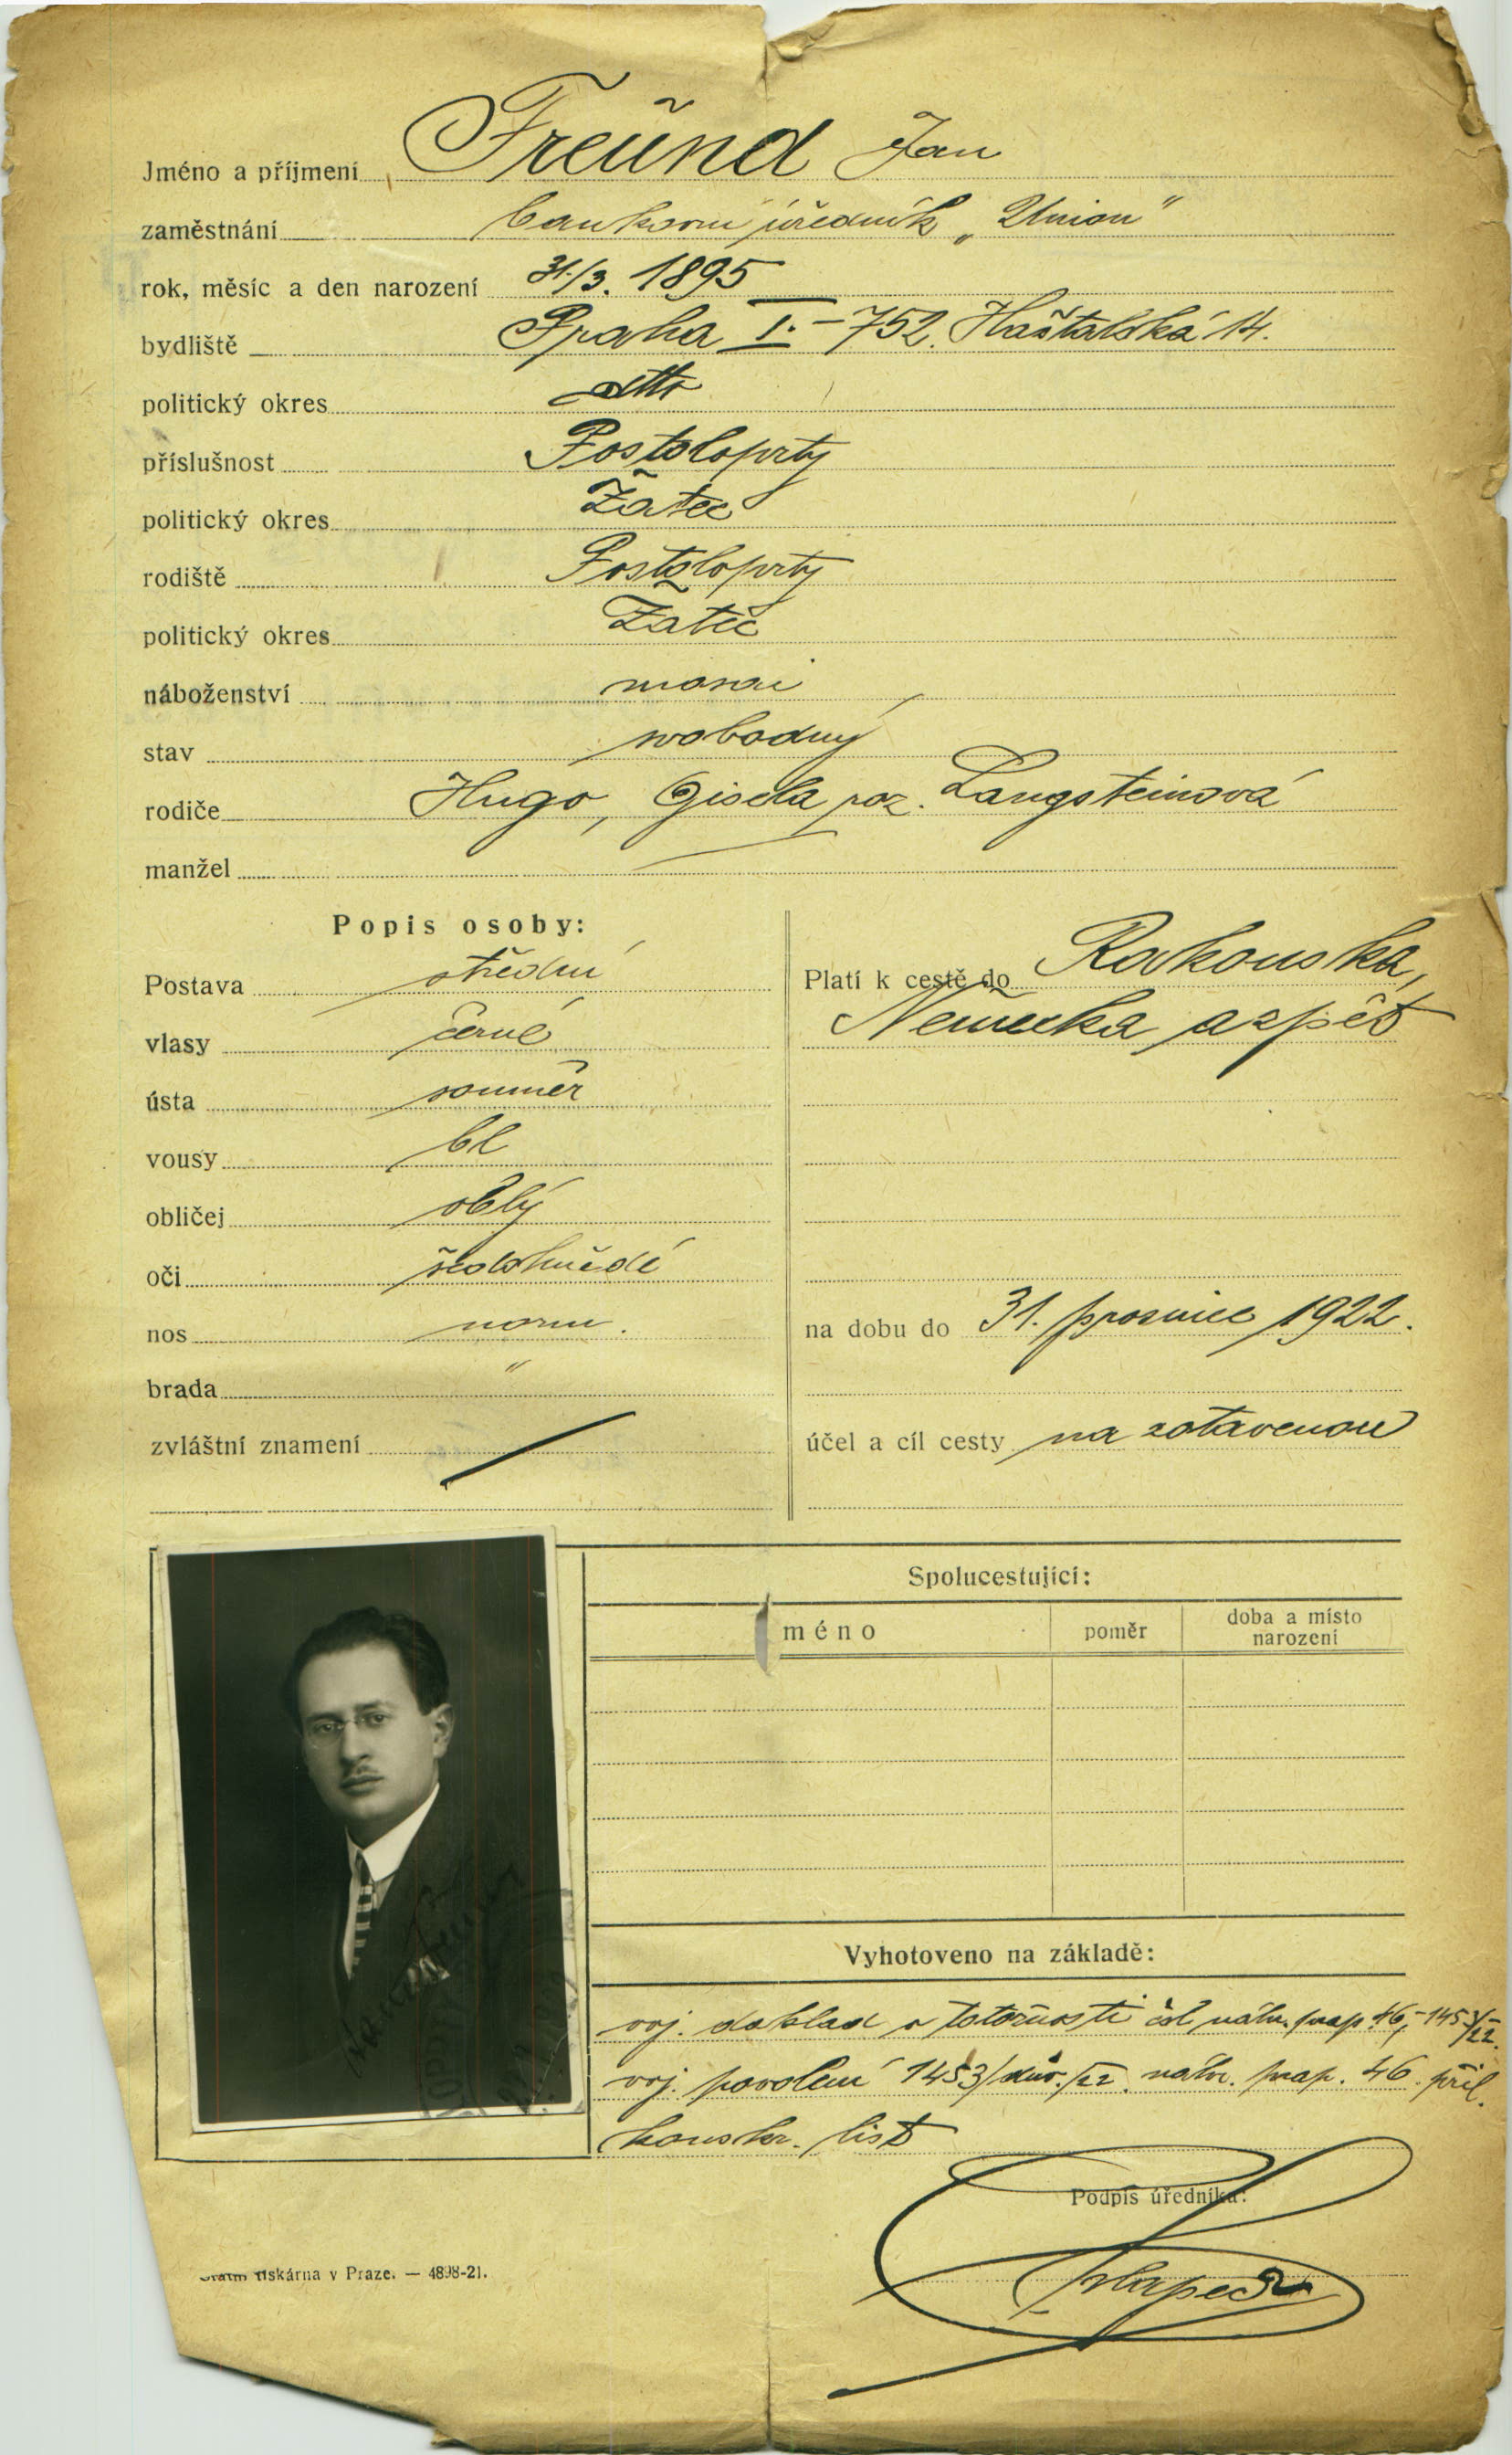 Jméno a příjmení Freund Jan
zaměstnání bankovní úředník „Union"
rok, měsíc a den narození 31./3. 1895
bydliště Praha I.-752. Haštalská 14.
politický okres dtto
příslušnost Postoloprty
politický okres Žatec
rodiště Postoloprty
politický okres Žatec
náboženství mosai
stav svobodný
rodiče Hugo, Gisela roz. Langsteinová
manžel
Popis osoby:
Postava střední
vlasy černé
ústa souměr
vousy bl
obličej oblý
oči šedohnědé
nos norm.
brada "
zvláštní znamení
Platí k cestě do Rakouska,
Německa a zpět
na dobu do 31. prosince 1922.
účel a cíl cesty na zotavenou
Spolucestující:
méno poměr doba a místo
narození
Vyhotoveno na základě:
voj. doklad o totožnosti čsl náhr. prap. 46,-1453/22.
voj. povolení 1453/dův./22. náhr. prap. 46. příl.
konskr. list
Podpis úředníka:
tiskárna v Praze. — 4898-21.